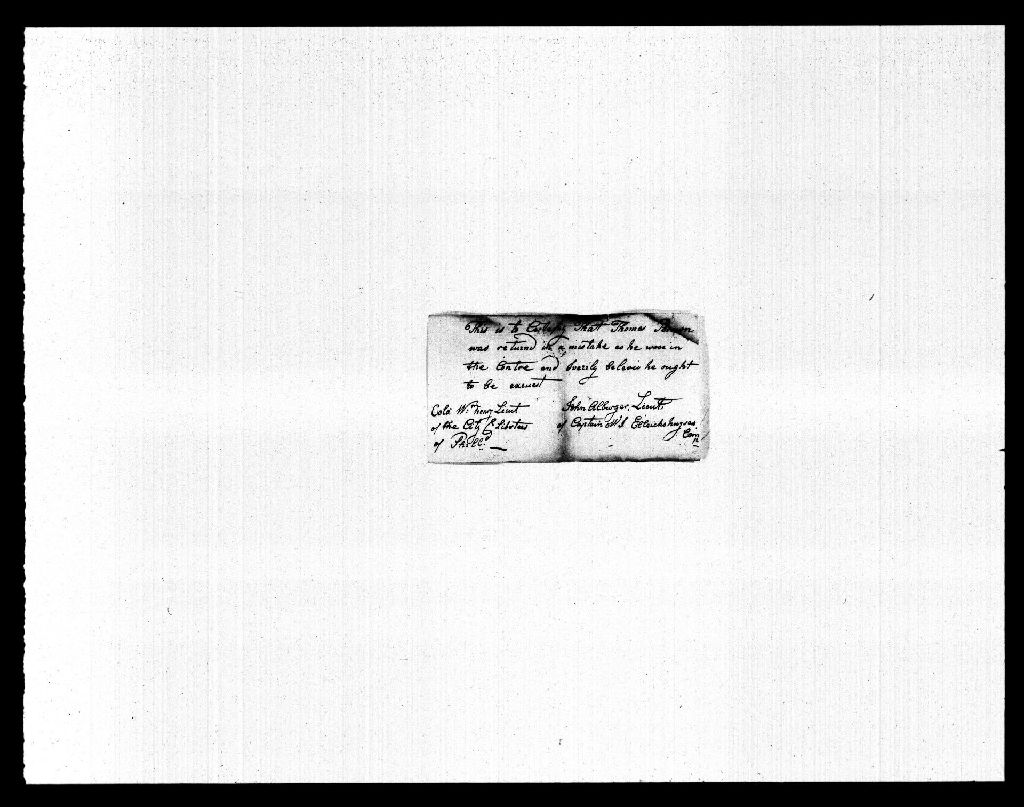 This is to Certefy That Thomas
was returnd in a mistake as he wore in
the Contre and I verily beleive he ought
to be excuest
Cold Wm Henry Lieut
of the City & Liberties
of Philad
John Alburger Lieut
of Captain Wl
Comy